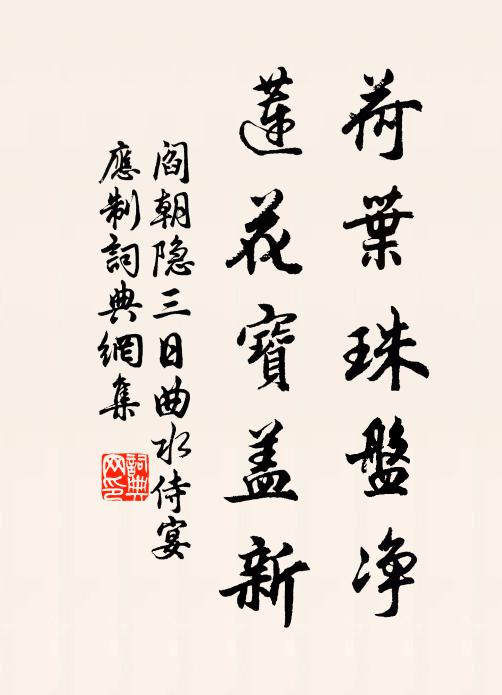 荷葉珠盤净
蓮花寶盖新
閻朝隐三日曲水侍宴
應制詞典網集
詞典網印